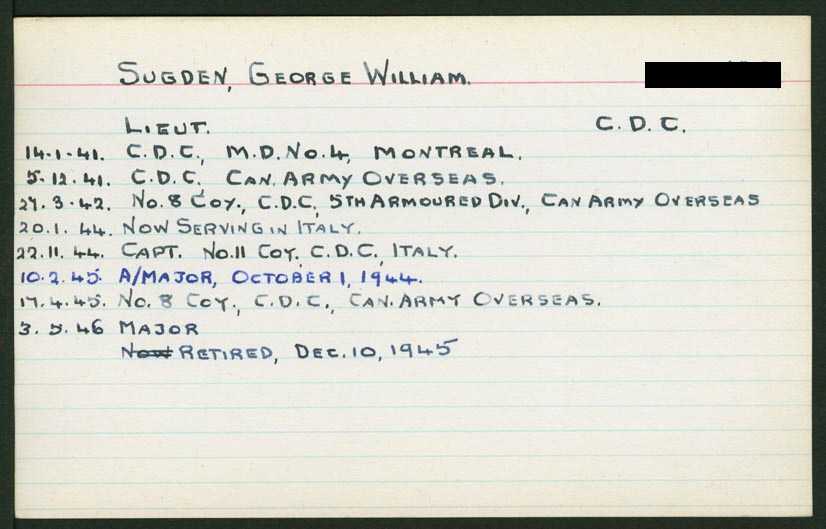 SUGDEN, GEORGE WILLIAM.
LIEUT. C.D.C.
14.1.41. C.D.C., M.D.No.4, MONTREAL.
5.12.41. C.D.C. CAN. ARMY OVERSEAS.
27.3.42. No.8 COY., C.D.C, 5TH ARMOURED DIV., CAN ARMY OVERSEAS
20.1.44. NOW SERVING IN ITALY.
22.11.44. CAPT. No.11 COY. C.D.C., ITALY.
10.2.45. A/MAJOR, OCTOBER 1, 1944.
17.4.45. No. 8 COY., C.D.C., CAN. ARMY OVERSEAS.
3.5.46 MAJOR
Now RETIRED, DEC. 10, 1945